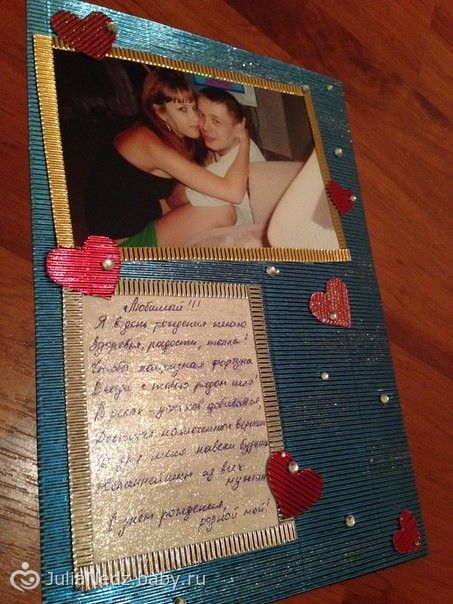 Любимый!!!
Я в день рождения желаю
Здоровья, радости, тепла!
Чтобы капризная фортуна
Всегда с тобою рядом шла!
В делах - успехов добивайся,
Достигай намеченных вершин
Ты для меня навеки будешь
Желаннейшим из всех
мужчин
С днём рождения,
родной мой!
JuliaNedz-baby.ru